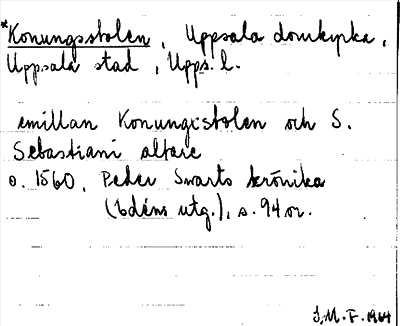 *Konungsstolen, Uppsala domkyrka,
Uppsala stad, Upps. l.
emillan Konungxstolen och S.
Sebastiani altare
o. 1560, Peder Swarts krönika
(Edéns utg.), s. 94 or.
J.M.F. 1964